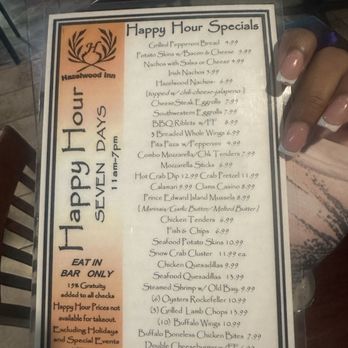 H
Hazelwood Inn
Happy Hour
SEVEN DAYS
11am-7pm
EAT IN
BAR ONLY
15% Gratuity
added to all checks
Happy Hour Prices not
available for takeout.
Excluding Holidays
and Special Events
Happy Hour Specials
Grilled Pepperoni Bread 4.99
Potato Skins w/Bacon & Cheese 5.99
Nachos with Salsa or Cheese 4.99
Irish Nachos 5.99
Hazelwood Nachos 6.99
(topped w/ chili-cheese-jalapeno)
CheeseSteak Eggrolls 7.99
Southwestern Eggrolls 6.99
BBQ Riblets w/FF 8.99
3 Breaded Whole Wings 6.99
Pita Pizza w/Pepperoni 4.99
Combo Mozzarella/Chk Tenders 7.99
Mozzarella Sticks 6.99
Hot Crab Dip 12.99 Crab Pretzel 11.99
Calamari 9.99 Clams Casino 8.99
Prince Edward Island Mussels 8.99
( Marinara, Garlic Butter, Melted Butter )
Chicken Tenders 6.99
Fish & Chips 6.99
Seafood Potato Skins 10.99
Snow Crab Cluster 11.99 ea.
Chicken Quesadillas 9.99
Seafood Quesadillas 13.99
Steamed Shrimp w/ Old Bay 9.99
(6) Oysters Rockefeller 10.99
(3) Grilled Lamb Chops 13.99
(10) Buffalo Wings 10.99
Buffalo Boneless Chicken Bites 7.99
Double Cheeseburger w/FF